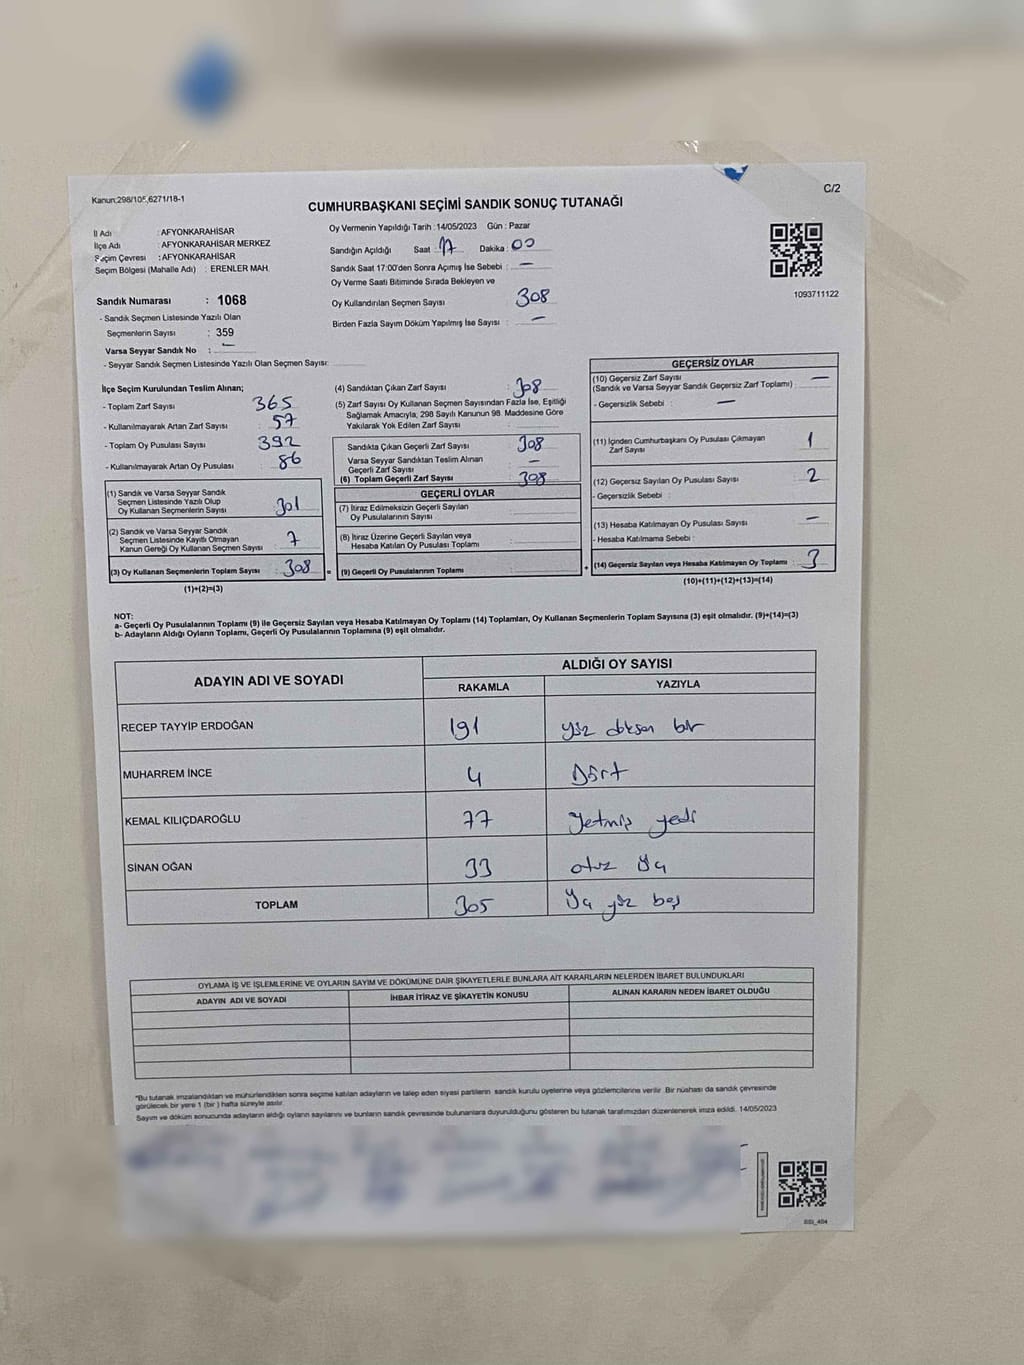 Kanun:298/105,6271/18-1
C/2
CUMHURBAŞKANI SEÇİMİ SANDIK SONUÇ TUTANAĞI
İl Adı : AFYONKARAHİSAR
İlçe Adı : AFYONKARAHİSAR MERKEZ
Seçim Çevresi : AFYONKARAHİSAR
Seçim Bölgesi (Mahalle Adı) : ERENLER MAH.
Sandık Numarası : 1068
- Sandık Seçmen Listesinde Yazılı Olan
Seçmenlerin Sayısı : 359
Varsa Seyyar Sandık No : –
- Seyyar Sandık Seçmen Listesinde Yazılı Olan Seçmen Sayısı:
Oy Vermenin Yapıldığı Tarih : 14/05/2023 Gün : Pazar
Sandığın Açıldığı Saat 17 Dakika : 00
Sandık Saat 17:00'den Sonra Açımış İse Sebebi : –
Oy Verme Saati Bitiminde Sırada Bekleyen ve
Oy Kullandırılan Seçmen Sayısı : 308
Birden Fazla Sayım Döküm Yapılmış İse Sayısı : –
1093711122
İlçe Seçim Kurulundan Teslim Alınan;
- Toplam Zarf Sayısı : 365
- Kullanılmayarak Artan Zarf Sayısı : 57
- Toplam Oy Pusulası Sayısı : 392
- Kullanılmayarak Artan Oy Pusulası : 86
(1) Sandık ve Varsa Seyyar Sandık
Seçmen Listesinde Yazılı Olup
Oy Kullanan Seçmenlerin Sayısı : 301
(2) Sandık ve Varsa Seyyar Sandık
Seçmen Listesinde Kayıtlı Olmayan
Kanun Gereği Oy Kullanan Seçmen Sayısı : 7
(3) Oy Kullanan Seçmenlerin Toplam Sayısı : 308
(1)+(2)=(3)
(4) Sandıktan Çıkan Zarf Sayısı : 308
(5) Zarf Sayısı Oy Kullanan Seçmen Sayısından Fazla İse, Eşitliği
Sağlamak Amacıyla, 298 Sayılı Kanunun 98. Maddesine Göre
Yakılarak Yok Edilen Zarf Sayısı :
Sandıkta Çıkan Geçerli Zarf Sayısı : 308
Varsa Seyyar Sandıktan Teslim Alınan
Geçerli Zarf Sayısı : –
(6) Toplam Geçerli Zarf Sayısı : 308
GEÇERLİ OYLAR
(7) İtiraz Edilmeksizin Geçerli Sayılan
Oy Pusulalarının Sayısı :
(8) İtiraz Üzerine Geçerli Sayılan veya
Hesaba Katılan Oy Pusulası Toplamı :
= (9) Geçerli Oy Pusulalarının Toplamı :
GEÇERSİZ OYLAR
(10) Geçersiz Zarf Sayısı
(Sandık ve Varsa Seyyar Sandık Geçersiz Zarf Toplamı) : –
- Geçersizlik Sebebi : –
(11) İçinden Cumhurbaşkanı Oy Pusulası Çıkmayan
Zarf Sayısı : 1
(12) Geçersiz Sayılan Oy Pusulası Sayısı : 2
- Geçersizlik Sebebi :
(13) Hesaba Katılmayan Oy Pusulası Sayısı : –
- Hesaba Katılmama Sebebi :
+ (14) Geçersiz Sayılan veya Hesaba Katılmayan Oy Toplamı : 3
(10)+(11)+(12)+(13)=(14)
NOT:
a- Geçerli Oy Pusulalarının Toplamı (9) ile Geçersiz Sayılan veya Hesaba Katılmayan Oy Toplamı (14) Toplamları, Oy Kullanan Seçmenlerin Toplam Sayısına (3) eşit olmalıdır. (9)+(14)=(3)
b- Adayların Aldığı Oyların Toplamı, Geçerli Oy Pusulalarının Toplamına (9) eşit olmalıdır.
ADAYIN ADI VE SOYADI
ALDIĞI OY SAYISI
RAKAMLA YAZIYLA
RECEP TAYYİP ERDOĞAN 191 yüz doksan bir
MUHARREM İNCE 4 Dört
KEMAL KILIÇDAROĞLU 77 Yetmiş yedi
SİNAN OĞAN 33 otuz üç
TOPLAM 305 Üç yüz beş
OYLAMA İŞ VE İŞLEMLERİNE VE OYLARIN SAYIM VE DÖKÜMÜNE DAİR ŞİKAYETLERLE BUNLARA AİT KARARLARIN NELERDEN İBARET BULUNDUKLARI
ADAYIN ADI VE SOYADI İHBAR İTİRAZ VE ŞİKAYETİN KONUSU ALINAN KARARIN NEDEN İBARET OLDUĞU
"Bu tutanak imzalandıktan ve mühürlendikten sonra seçime katılan adayların ve talep eden siyasi partilerin sandık kurulu üyelerine veya gözlemcilerine verilir. Bir nüshası da sandık çevresinde
görülecek bir yere 1 (bir) hafta süreyle asılır.
Sayım ve döküm sonucunda adayların aldığı oyların sayılarını ve bunların sandık çevresinde bulunanlara duyurulduğunu gösteren bu tutanak tarafımızdan düzenlenerek imza edildi. 14/05/2023